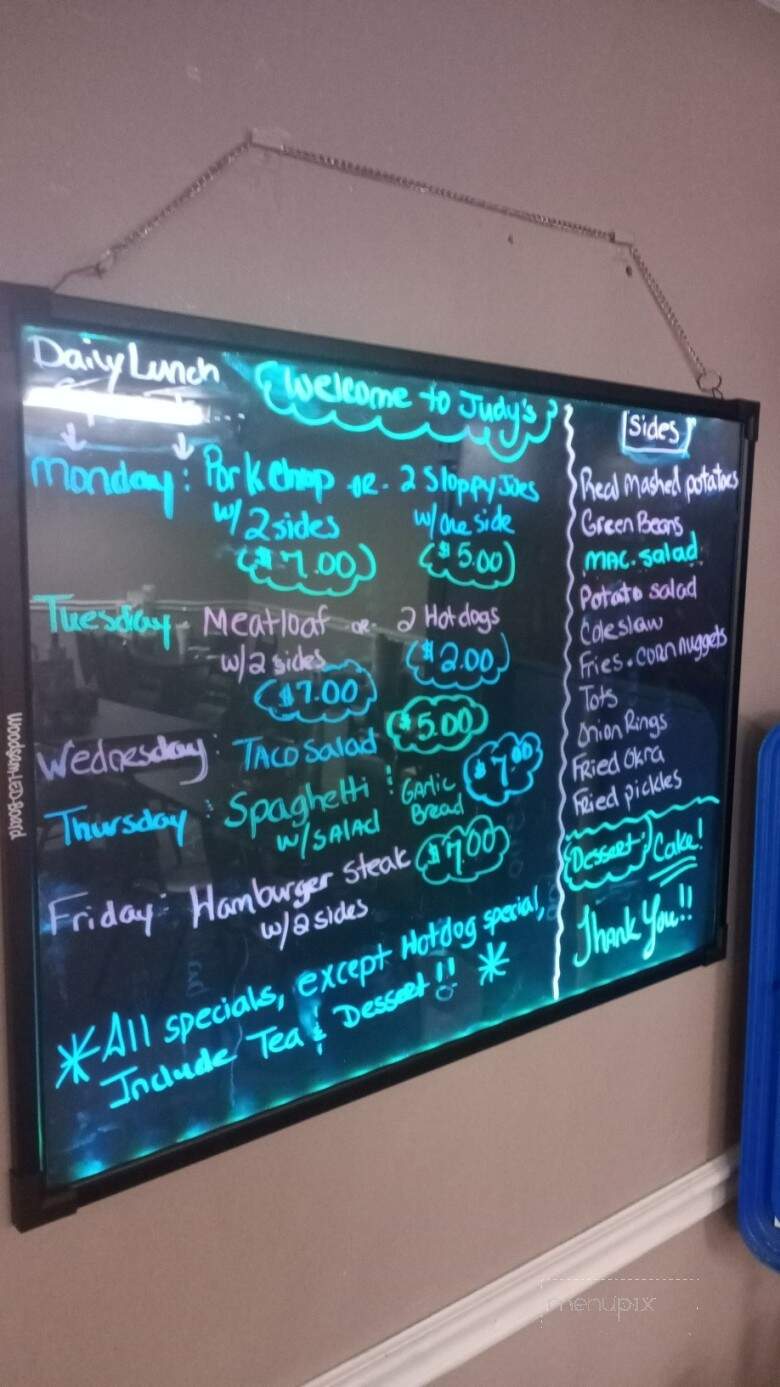 Daily Lunch
Welcome to Judy's
Monday: Pork Chop or 2 Sloppy Joes
w/ 2 sides w/ one side
$7.00 $5.00
Tuesday Meatloaf or 2 Hotdogs
w/ 2 sides $2.00
$7.00
Wednesday: Taco Salad $5.00
Thursday: Spaghetti & Garlic Bread $7.00
w/ Salad
Friday: Hamburger Steak $7.00
w/ 2 sides
*All specials, except Hotdog special,
Include Tea & Dessert!! *
Sides
Real Mashed potatoes
Green Beans
Mac. salad
Potato salad
Coleslaw
Fries • Corn nuggets
Tots
Onion Rings
Fried Okra
Fried pickles
Dessert: Cake!
Thank You!!
Woodsam-LED-Board
menupix